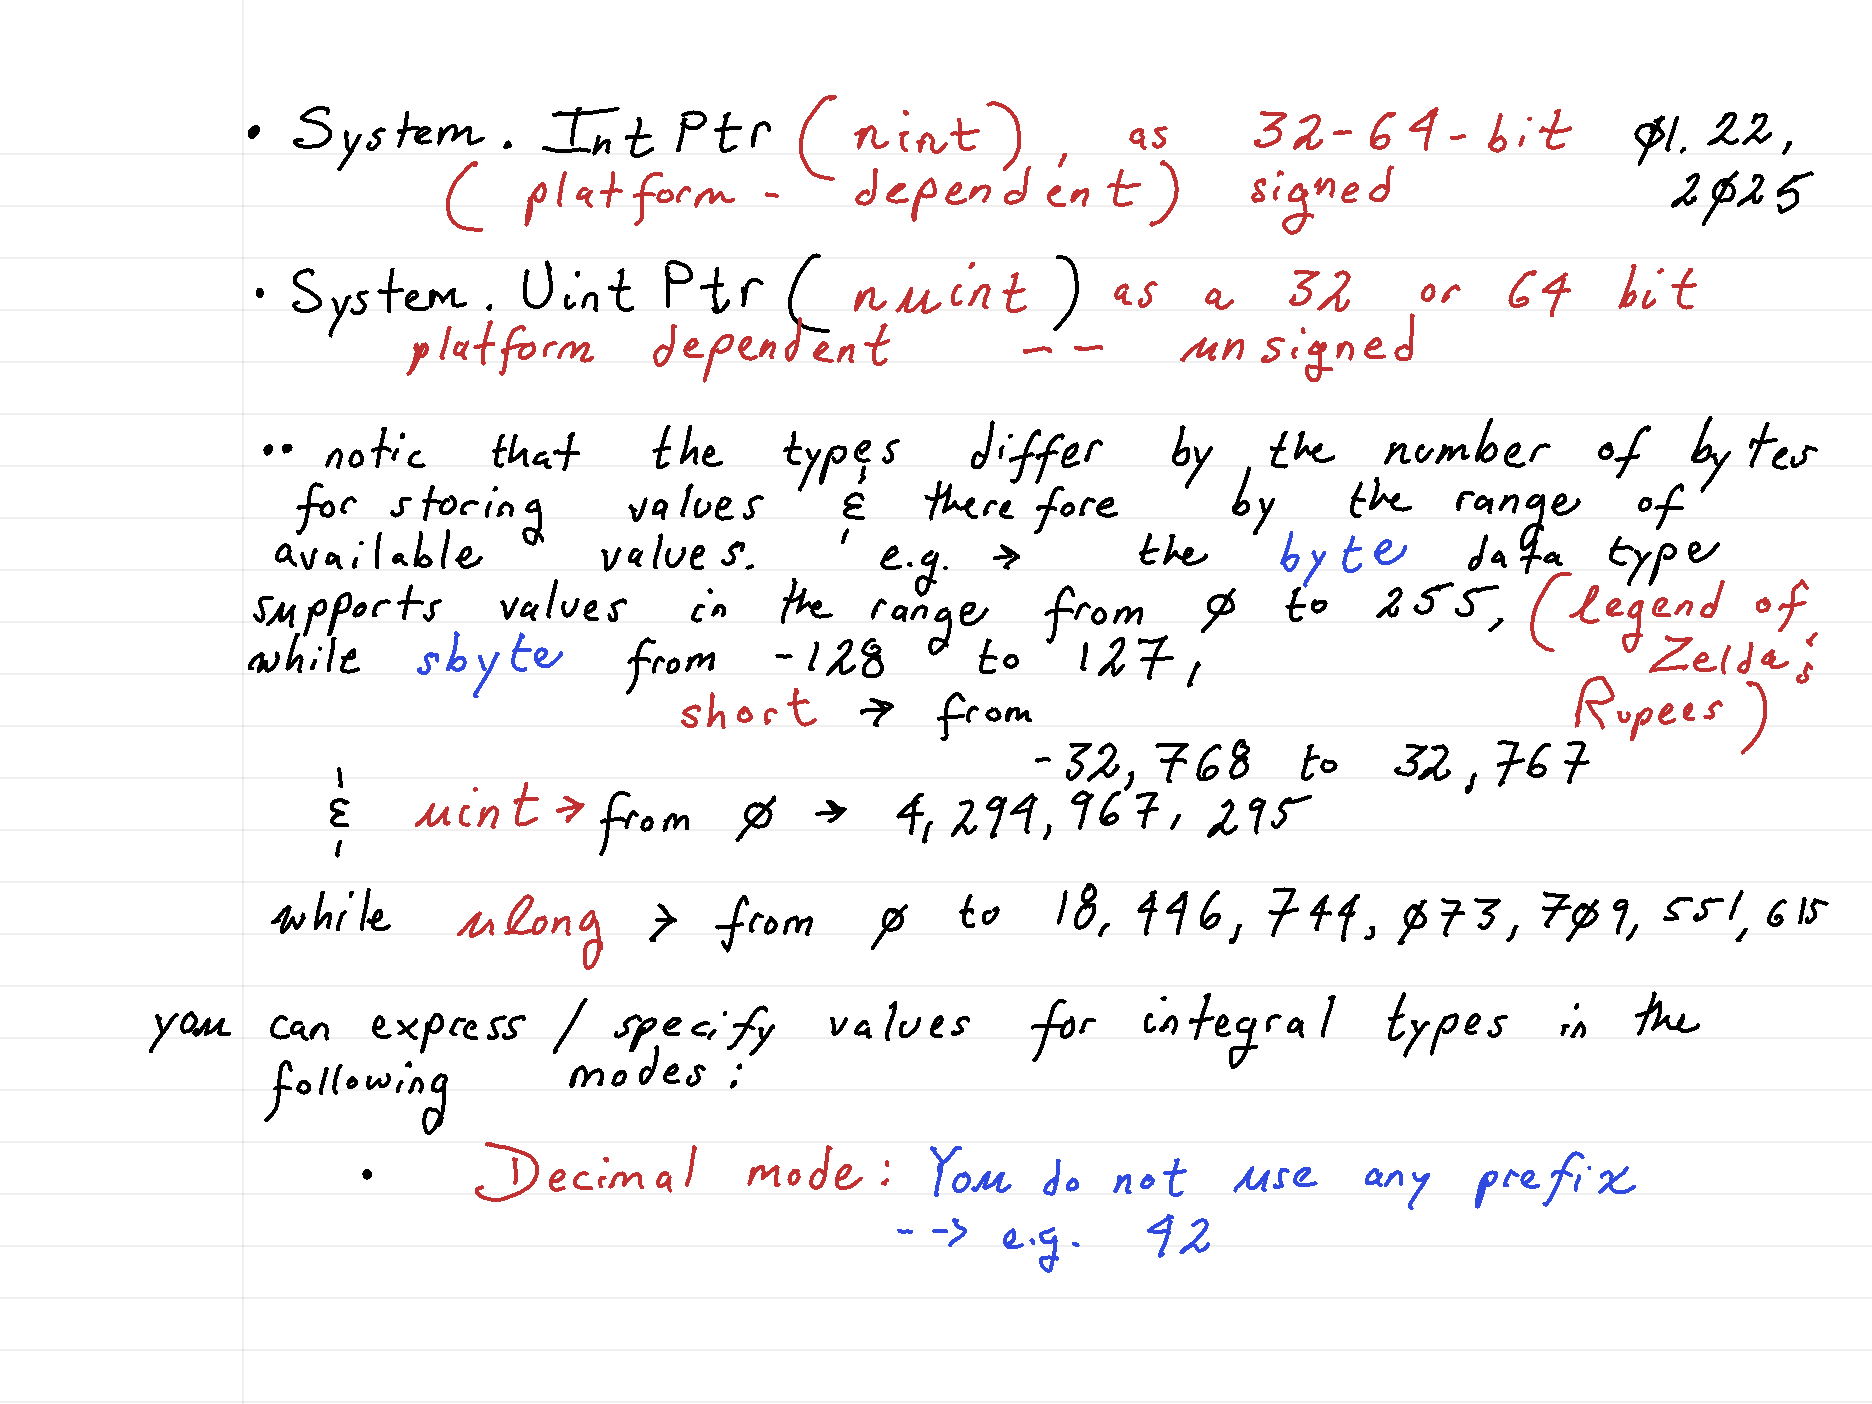 • System. Int Ptr (nint), as 32-64-bit Ø1. 22,
(platform - dependent) signed 2Ø25
• System. Uint Ptr (nuint) as a 32 or 64 bit
platform dependent -- unsigned
•• notic that the types differ by the number of bytes
for storing values & therefore by the range of
available values. e.g. → the byte data type
supports values in the range from Ø to 255, (legend of
while sbyte from -128 to 127, Zelda's
short → from Rupees)
-32,768 to 32,767
& uint → from Ø → 4,294,967,295
while ulong → from Ø to 18,446,744,Ø73,7Ø9,551,615
you can express / specify values for integral types in the
following modes:
• Decimal mode: You do not use any prefix
--> e.g. 42